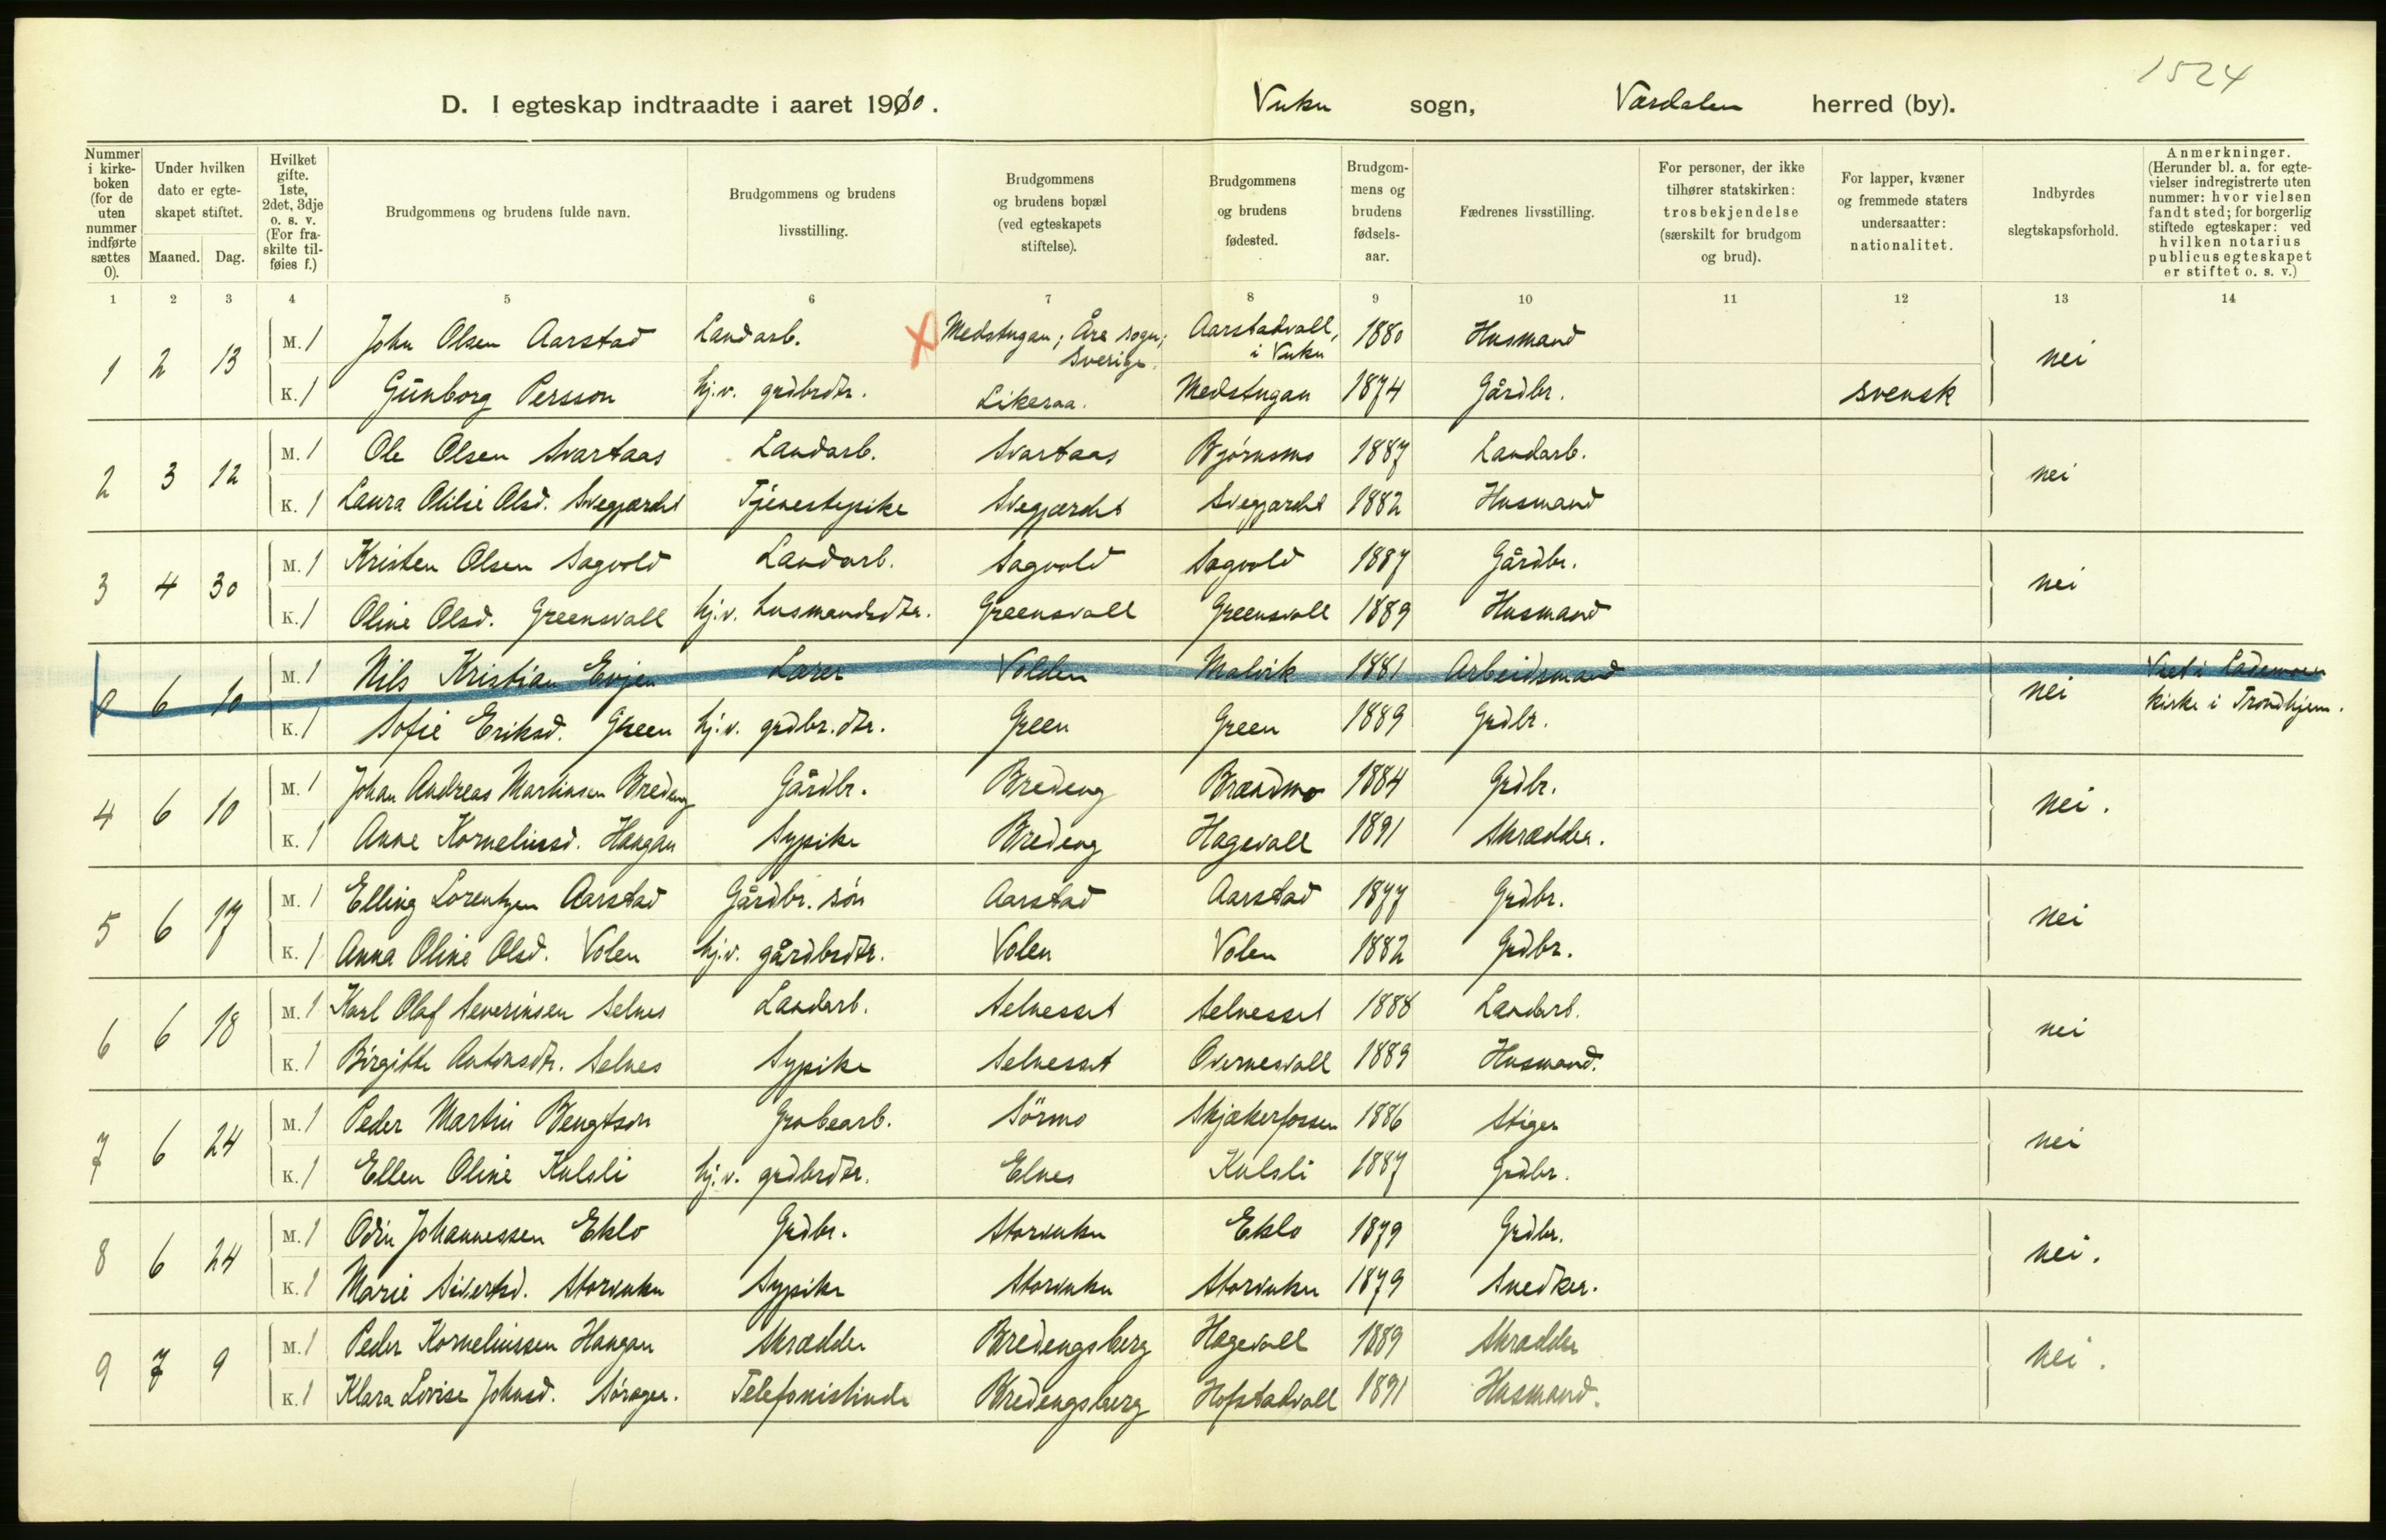 1524
D. I egteskap indtraadte i aaret 1910. Vuku sogn, Værdalen herred (by).
Nummer i kirke-boken (for de uten nummer indførte sættes 0).
Under hvilken dato er egte-skapet stiftet.
Maaned. Dag.
Hvilket gifte. 1ste, 2det, 3dje o. s. v. (For fra-skilte til-føies f.)
Brudgommens og brudens fulde navn.
Brudgommens og brudens livsstilling.
Brudgommens og brudens bopæl (ved egteskapets stiftelse).
Brudgommens og brudens fødested.
Brudgom-mens og brudens fødsels-aar.
Fædrenes livsstilling.
For personer, der ikke tilhører statskirken: trosbekjendelse (særskilt for brudgom og brud).
For lapper, kvæner og fremmede staters undersaatter: nationalitet.
Indbyrdes slegtskapsforhold.
Anmerkninger. (Herunder bl. a. for egte-vielser indregistrerte uten nummer: hvor vielsen fandt sted; for borgerlig stiftede egteskaper: ved hvilken notarius publicus egteskapet er stiftet o. s. v.)
1 2 3 4 5 6 7 8 9 10 11 12 13 14
1 2 13 M. 1 John Olsen Aarstad Landarb. X Medstugan; Åre sogn; Sverige. Aarstadvall, i Vuku 1880 Husmand nei
K. 1 Gunborg Persson hj.v. grdbrdtr. Likeraa. Medstugan 1874 Gårdbr. svensk
2 3 12 M. 1 Ole Olsen Svartaas Landarb. Svartaas Bjørnsmo 1887 Landarb. nei
K. 1 Laura Otilie Olsd. Svegjærdet Tjenestepike Svegjærdet Svegjærdet 1882 Husmand
3 4 30 M. 1 Kristen Olsen Sagvold Landarb. Sagvold Sagvold 1887 Gårdbr. nei
K. 1 Oline Olsd. Greensvall hj.v. husmandsdtr. Greensvall Greensvall 1889 Husmand
0 6 10 M. 1 Nils Kristian Evjen Lærer Volden Malvik 1881 Arbeidsmand nei Viet i Lademoen
K. 1 Sofie Eriksd. Green hj.v. grdbr.dtr. Green Green 1889 Grdbr. kirke i Trondhjem.
4 6 10 M. 1 Johan Andreas Martinsen Bredeng Gårdbr. Bredeng Brændmo 1884 Grdbr. nei.
K. 1 Anne Korneliusd. Haugan Sypike Bredeng Hagevall 1891 Skrædder.
5 6 17 M. 1 Elling Lorentzen Aarstad Gårdbr. søn Aarstad Aarstad 1877 Grdbr. nei
K. 1 Anna Oline Olsd. Volen hj.v. gårdbrdtr. Volen Volen 1882 Grdbr.
6 6 18 M. 1 Karl Olaf Severinsen Selnes Landarb. Selnesset Selnesset 1888 Landarb. nei
K. 1 Birgitte Antonsdtr. Selnes Sypike Selnesset Overnesvall 1889 Husmand.
7 6 24 M. 1 Peder Martin Bengtson Grubearb. Sörmo Skjækerfossen 1886 Stiger nei
K. 1 Ellen Oline Kulsli hj.v. grdbrdtr. Elnes Kulsli 1887 Grdbr.
8 6 24 M. 1 Odin Johannessen Eklo Grdbr. Storvuku Eklo 1879 Grdbr. nei.
K. 1 Marie Sivertsd. Storvuku Sypike Storvuku Storvuku 1879 Snedker.
9 7 9 M. 1 Peder Korneliussen Haugan Skrædder Bredengsberg Hagevall 1889 Skrædder nei.
K. 1 Klara Lovise Johnsd. Telefonistinde Bredengsberg Hofstadvall 1891 Husmand.